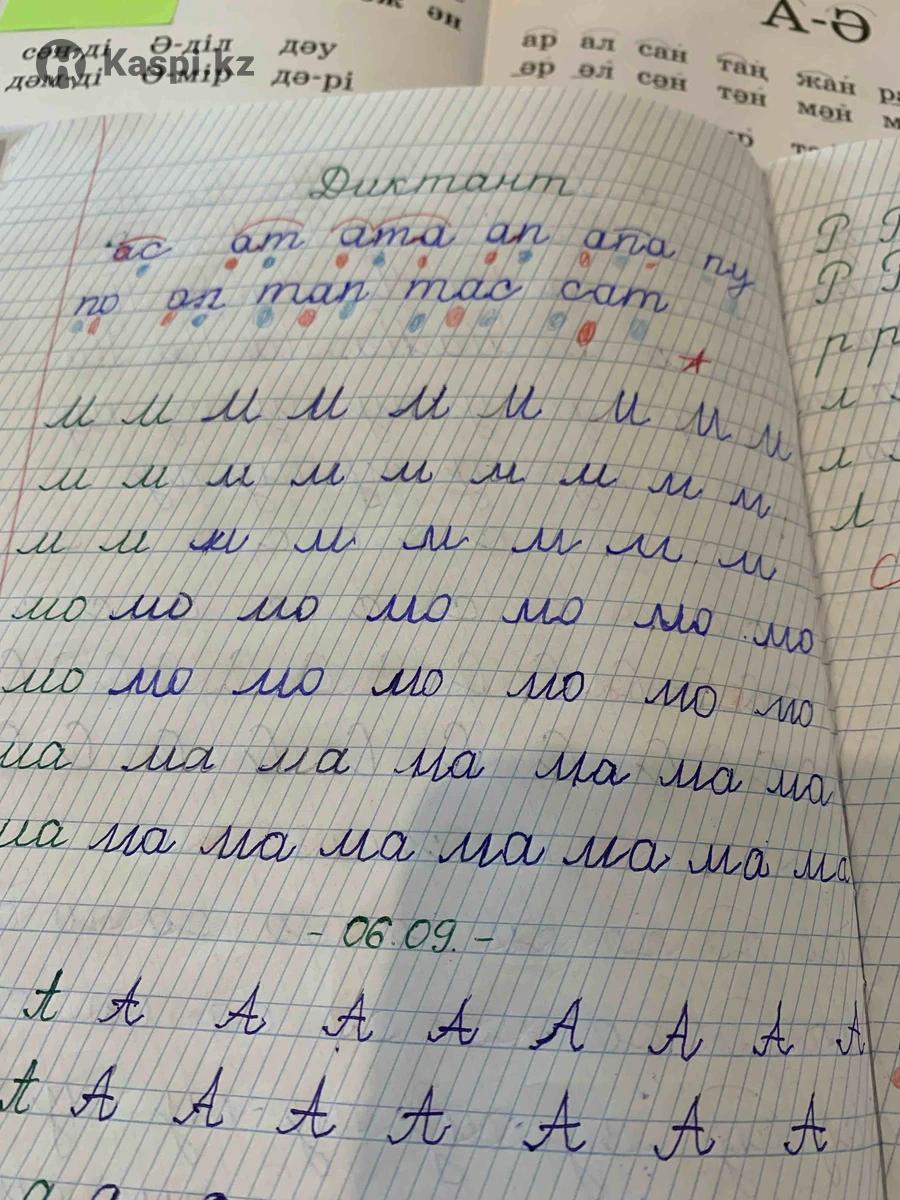 ән
А-Ә
сән-ді Ә-діл дәу
дәм-ді Ә-мір дә-рі
Kaspi.kz
ар ал сан таң жан
әр әл сән тән мән
Диктант
ас ат ата ап апа пу
по ап тап тас сат
м м м м м м м м м
м м м м м м м м м
м м м м м м м м
мо мо мо мо мо мо мо
мо мо мо мо мо мо мо
ма ма ма ма ма ма ма
ма ма ма ма ма ма ма ма
- 06.09. -
А А А А А А А А А
А А А А А А А А
Р
Р
р р
л
л
л
С